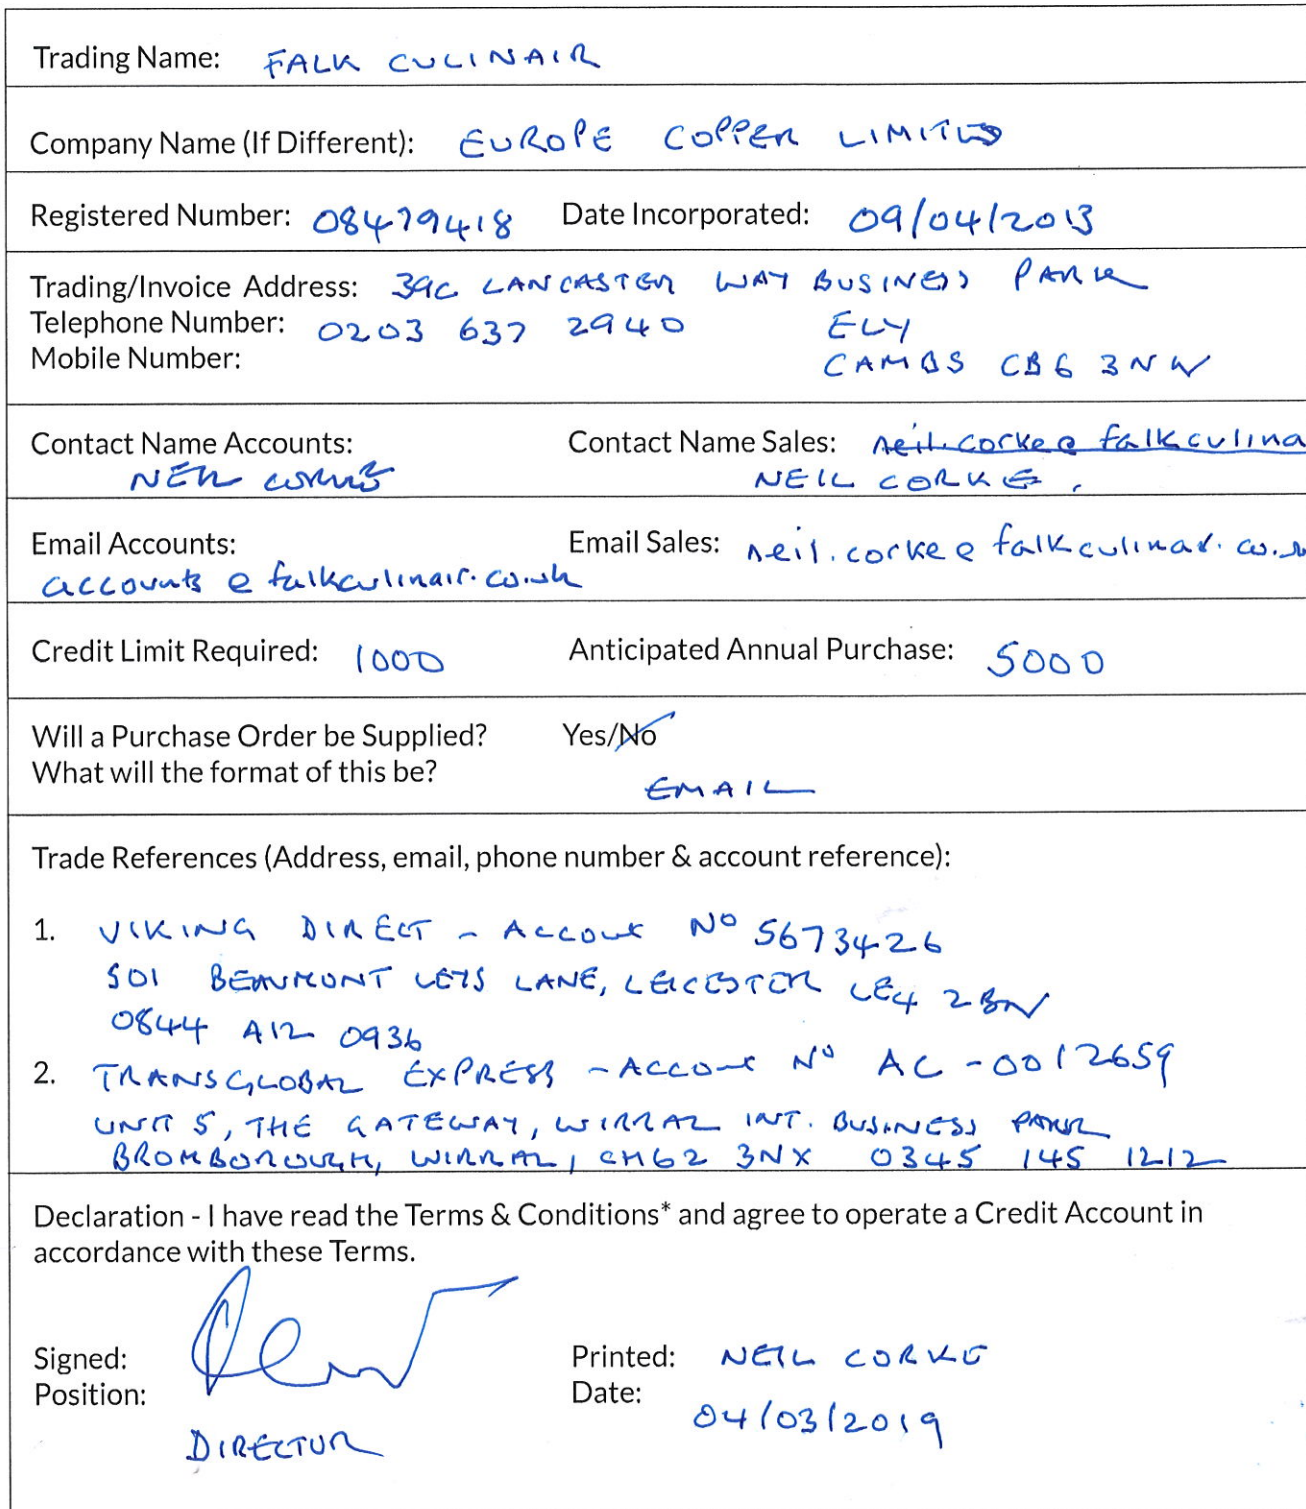 Trading Name: FALK CULINAIR
Company Name (If Different): EUROPE COPPER LIMITED
Registered Number: 08479418 Date Incorporated: 09/04/2013
Trading/Invoice Address: 39C LANCASTER WAY BUSINESS PARK
Telephone Number: 0203 637 2940 ELY
Mobile Number: CAMBS CB6 3NW
Contact Name Accounts: Contact Name Sales: neil.corke@falkculina
NEIL CORKE NEIL CORKE.
Email Accounts: Email Sales: neil.corke@falkculinair.co.u
accounts@falkculinair.co.uk
Credit Limit Required: 1000 Anticipated Annual Purchase: 5000
Will a Purchase Order be Supplied? Yes/No
What will the format of this be? EMAIL
Trade References (Address, email, phone number & account reference):
1. VIKING DIRECT - ACCOUNT No 5673426
501 BEAUMONT LEYS LANE, LEICESTER LE4 2BN
0844 412 0936
2. TRANSGLOBAL EXPRESS - ACCOUNT No AC-0012659
UNIT 5, THE GATEWAY, WIRRAL INT. BUSINESS PARK
BROMBOROUGH, WIRRAL, CH62 3NX 0345 145 1212
Declaration - I have read the Terms & Conditions* and agree to operate a Credit Account in
accordance with these Terms.
Signed: Printed: NEIL CORKE
Position: Date: 04/03/2019
DIRECTOR